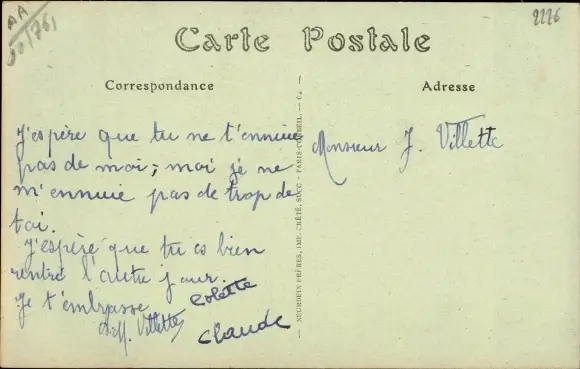 AA
90/761
2226
Carte Postale
Correspondance
Adresse
J'espère que tu ne t'ennuie
pas de moi; moi je ne
m'ennuie pas de trop de
toi.
J'espère que tu es bien
rentré l'autre jour.
Je t'embrasse
Colette
Villette
Claude
Monsieur J. Villette
NEURDEIN FRÈRES, IMP. CRÉTÉ, SUCC. — PARIS-CORBEIL. —